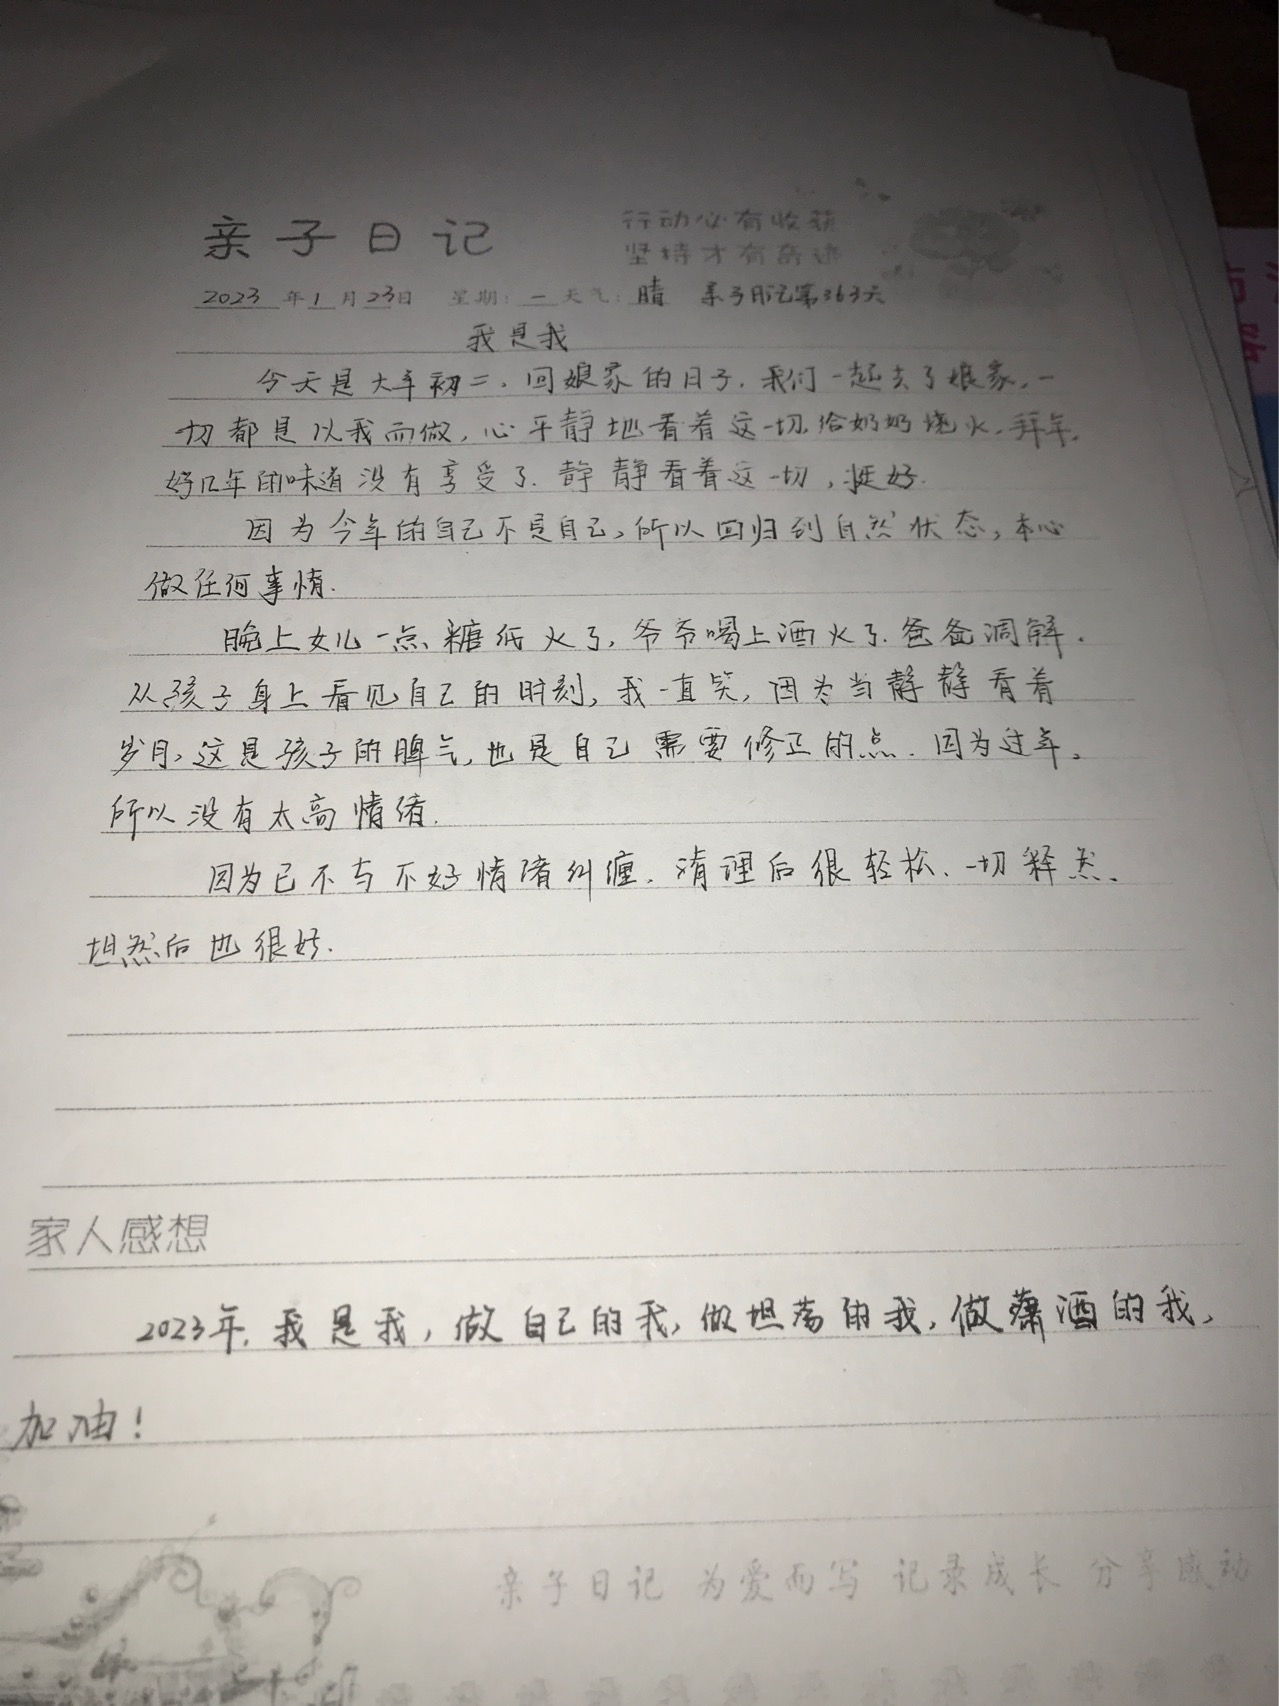 亲子日记
行动必有收获
坚持才有奇迹
2023年1月23日 星期:一 天气:晴 亲子日记第363天
我是我
今天是大年初二,回娘家的日子,我们一起去了娘家,一
切都是以我而做,心平静地看着这一切,给奶奶烧火,拜年,
好几年的味道没有享受了.静静看着这一切,挺好.
因为今年的自己不是自己,所以回归到自然状态,本心
做任何事情.
晚上女儿一点糖低火了,爷爷喝上酒火了.爸爸调解.
从孩子身上看见自己的时刻,我一直笑,因为当静静看着
岁月,这是孩子的脾气,也是自己需要修正的点.因为过年,
所以没有太高情绪.
因为已不与不好情绪纠缠.清理后很轻松、一切释然.
坦然后也很好.
家人感想
2023年,我是我,做自己的我,做坦荡的我,做潇洒的我,
加油!
亲子日记 为爱而写 记录成长 分享感动